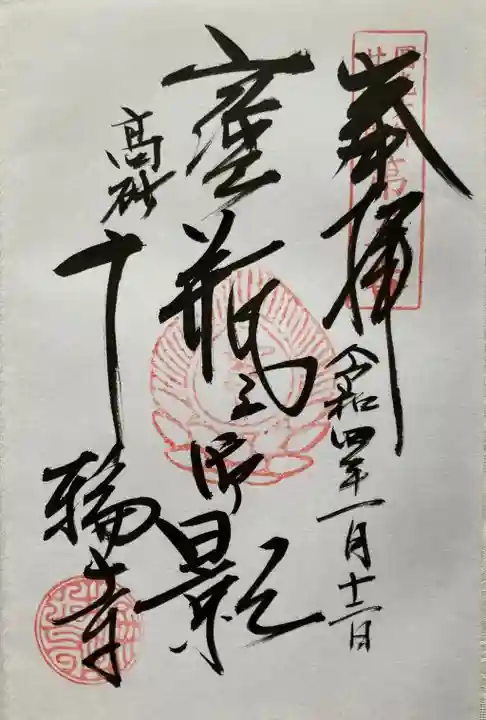 奉拝
令和四年一月十二日
寶瓶之御影
高砂
十輪寺